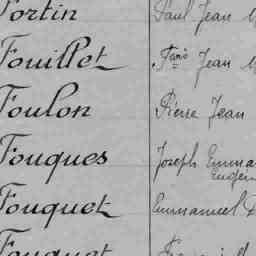 Fortin Paul Jean
Fouillet Jean
Foulon Pierre Jean
Fouques Joseph Emma
Eugèn
Fouquet Emmanuel
Fouquet